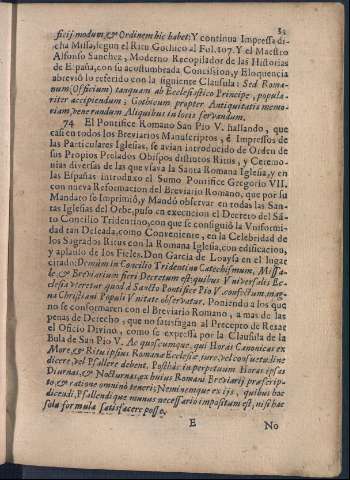 ficij modum, & Ordinem hic habet: Y continua Impressa di-
cha Missa, segun el Ritu Gothico al Fol. 107. Y el Maestro
Alfonso Sanchez, Moderno Recopilador de las Historias
de España, con su acostumbrada Concision, y Eloquencia
abreviò lo referido con la siguiente Clausula: Sed Roma-
num (Officium) tanquam ab Ecclesiastico Principe, popula-
riter accipiendum; Gothicum propter Antiquitatis memo-
riam, venerandum Aliquibus in locis servandum.
74 El Pontifice Romano San Pio V. hallando, que
casi en todos los Breviarios Manuscriptos, è Impressos de
las Particulares Iglesias, se avian introducido de Orden de
sus Propios Prelados Obispos distintos Ritus, y Ceremo-
nias diversas de las que vsava la Santa Romana Iglesia, y en
las Españas introduxo el Sumo Pontifice Gregorio VII.
con nueva Reformacion del Breviario Romano, que por su
Mandato se Imprimiò, y Mandò observar en todas las San-
tas Iglesias del Orbe, puso en execucion el Decreto del Sã-
to Concilio Tridentino, con que se consiguiò la Vniformi-
dad tan Deseada, como Conveniente, en la Celebridad de
los Sagrados Ritus con la Romana Iglesia, con edificacion,
y aplauso de los Fieles. Don Garcia de Loaysa en el lugar
citado: Demùm in Concilio Tridentino Catechismum, Missa-
le, & Breviarium fieri Decretum est: quibus Vniversalis Ec-
clesia vteretur quod à Sancto Pontifice Pio V. confectum, mag-
na Christiani Populi Vnitate observatur. Poniendo à los que
no se conformaren con el Breviario Romano, a mas de las
penas de Derecho, que no satisfagan al Precepto de Rezar
el Oficio Divino, como se expressa por la Clausula de la
Bula de San Pio V. Ac quoscumque, qui Horas Canonicas ex
More, & Ritu ipsius Romanæ Ecclesiæ, iure, vel consuetudine
dicere, vel Psallere debent, Posthàc in perpetuum Horas ipsas
Diurnas, & Nocturnas, ex huius Romani Breviarij præscrip-
to, & ratione omninò teneri; Neminemque ex ijs, quibus hoc
dicendi, Psallendique munus necessario impositum est, nisi hac
sola formula satisfacere posse.
E No